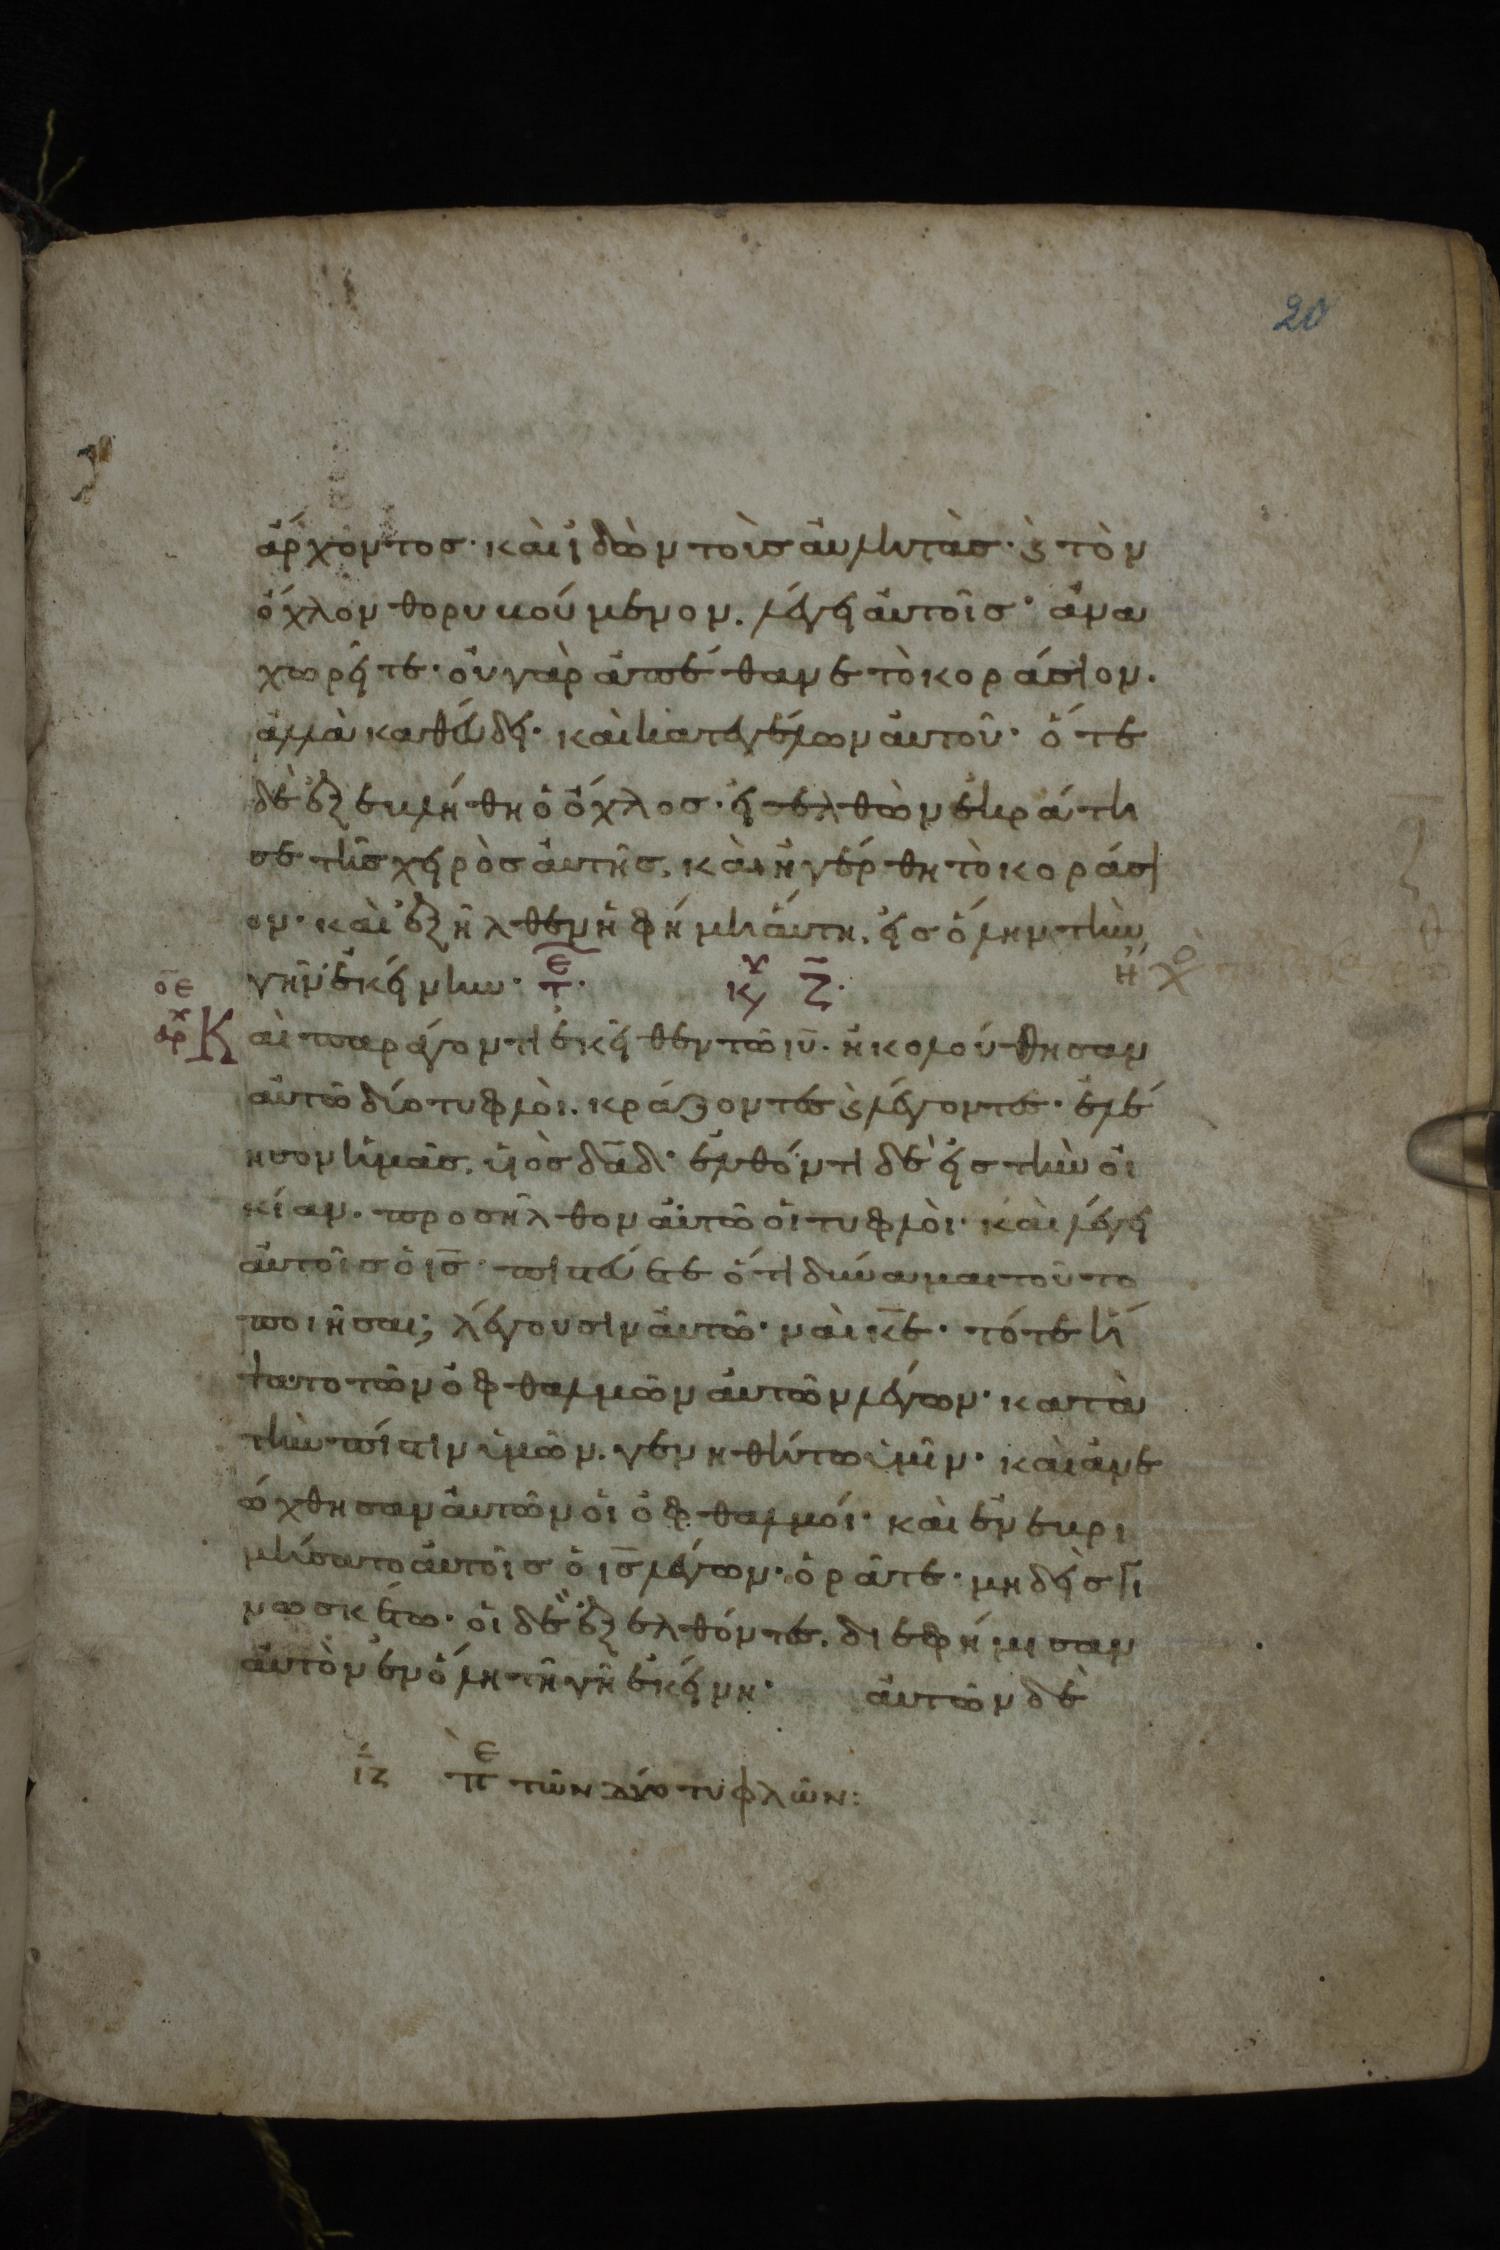 20
ἄρχοντοσ· καὶ ἰδὼν τοὺσ αὐλητὰσ· ϗ τὸν
ὄχλον θορυβούμενον. λέγει αὐτοῖσ· ἀνα
χωρεῖτε· οὐ γὰρ ἀπέθανε τὸ κοράσιον.
ἀλλὰ καθεύδει· καὶ κατεγέλων αὐτοῦ· ὅτε
δὲ ἐξεβλήθη ὁ ὄχλοσ· εἰσελθὼν ἐκράτη
σε τῆσ χειρὸσ αὐτῆσ. καὶ ἠγέρθη τὸ κοράσι
ον· καὶ ἐξῆλθεν ἡ φήμη αὕτη. εἰσ ὅλην τὴν
γῆν ἐκείνην· τε· κυ ζ·
οε
αρ Καὶ παράγοντι ἐκεῖθεν τῶ ιυ· ἠκολούθησαν
αὐτῶ δύο τυφλοὶ. κράζοντεσ ϗ λέγοντεσ· ἐλέ
ησον ἡμᾶσ. υἱὸσ δαδ· ἐλθόντι δὲ εἰσ τὴν οἰ
κίαν. προσῆλθον αὐτῶ οἱ τυφλοὶ· καὶ λέγει
αὐτοῖσ ὁ ισ· πιστεύετε ὅτι δύναμαι τοῦτο
ποιῆσαι; λέγουσιν αὐτῶ· ναὶ κε· τότε ἥ
ψατο τῶν ὀφθαλμῶν αὐτῶν λέγων· κατὰ
τὴν πίστιν ὑμῶν. γενηθήτω ὑμῖν· καὶ ἀνε
ώχθησαν αὐτῶν οἱ ὀφθαλμοί· καὶ ἐνεβρι
μήσατο αὐτοῖσ ὁ ισ λέγων· ὁρᾶτε· μηδεὶσ γι
νωσκέτω· οἱ δὲ ἐξελθόντεσ. διεφήμισαν
αὐτὸν ἐν ὅλη τῆ γῆ ἐκείνη· αὐτῶν δὲ
ιζ πε τῶν δύο τυφλῶν: